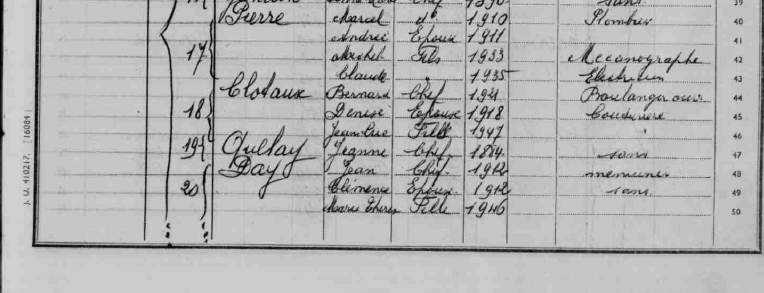 1890 sans 39
Pierre Marcel d° 1910 Plombier 40
Andrée Epouse 1911 41
17 Michel Fils 1933 Mecanographe 42
Claude 1935 Electricien 43
Clotaux Bernard Chef 1921 Boulanger ouv 44
18 Denise Epouse 1918 Couturiere 45
Jean Luc 1947 46
19 Jeanne Chef 1884 sans 47
Day Jean Chef 1912 48
20 Clémence Epouse 1912 sans 49
Marie Therese Fille 1946 50
J. U. 410217.